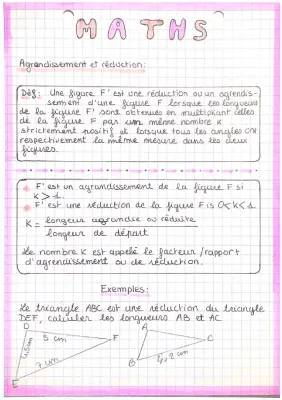 MATHS
Agrandissement et réduction:
Déf: Une figure F' est une réduction ou un agrandis-
sement d'une figure F lorsque les longueurs
de la figure F' sont obtenues en multipliant celles
de la figure F par un même nombre K
strictement positif et lorsque tous les angles ont
respectivement la même mesure dans les deux
figures.
F' est un agrandissement de la figure F si
K > 1.
F' est une réduction de la figure F is 0<K<1
K = longueur agrandie ou réduite
longueur de départ
Le nombre K est appelé le facteur/rapport
d'agrandissement ou de réduction.
Exemples:
Le triangle ABC est une réduction du triangle
DEF, calculer les longueurs AB et AC
D A
5 cm F C
B 2 cm
7 cm
E